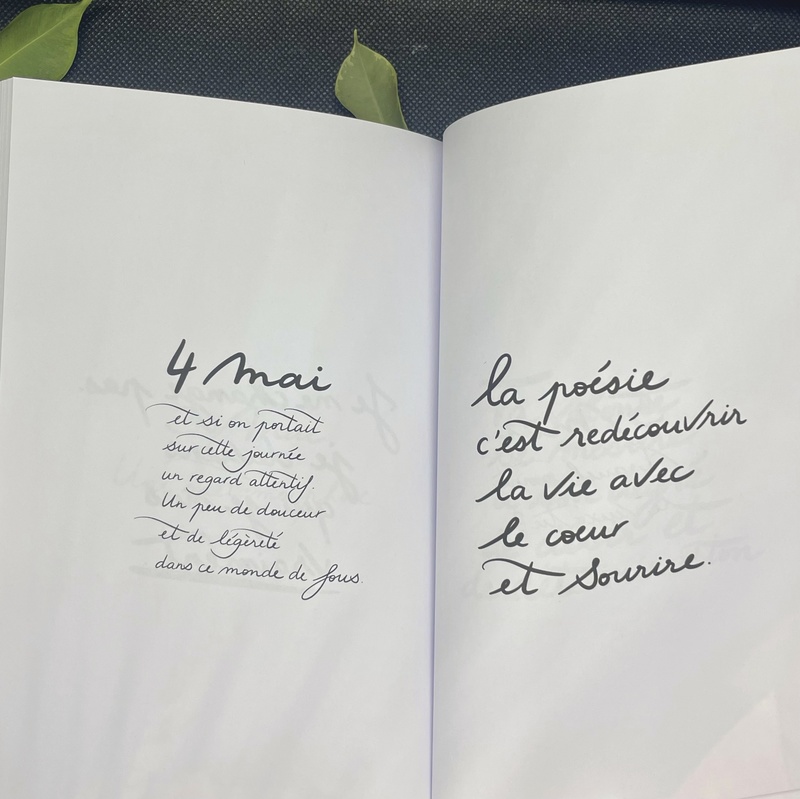 4 mai
et si on portait
sur cette journée
un regard attentif.
Un peu de douceur
et de légèreté
dans ce monde de fous.
la poésie
c'est redécouvrir
la vie avec
le coeur
et sourire.